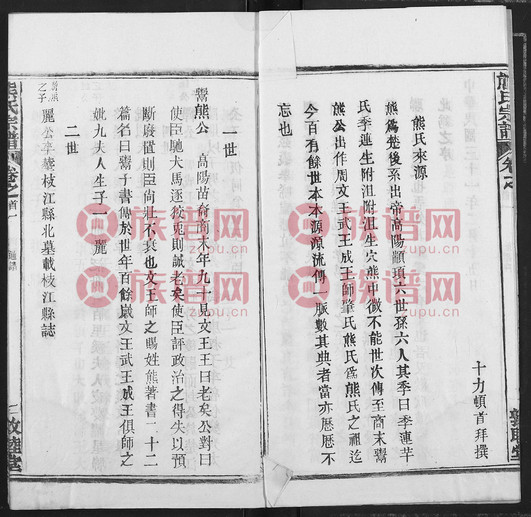 熊氏宗譜
卷之首
熊氏來源
熊爲楚後系出帝高陽顓頊六世孫六人其季曰季連芊
氏季連生附沮附沮生穴熊中微不能世次傳至商末鬻
熊公出作周文王武王成王師肇氏熊氏爲熊氏之祖迄
今百有餘世本本源源流傳一脈數其典者當亦歷歷不
忘也
十力頓首拜撰
敦睦堂
一世
鬻熊公 高陽苗裔商末年九十見文王王曰老矣公對曰
使臣馳犬馬逐狡兎則誠老矣使臣評政治之得失以預
斷廢置則臣尚壯不衰也文王師之賜姓熊著書二十二
篇名曰鬻子書傳於世年百餘歲文王武王成王俱師之
妣九夫人生子一 麗
二世
鬻熊之子 麗公卒葬枝江縣北墓載枝江縣誌
熊氏宗譜
卷之首一
二
敦睦堂
族谱网
zupu.cn
族谱网
zupu.cn
族谱网
zupu.cn
族谱网
zupu.cn